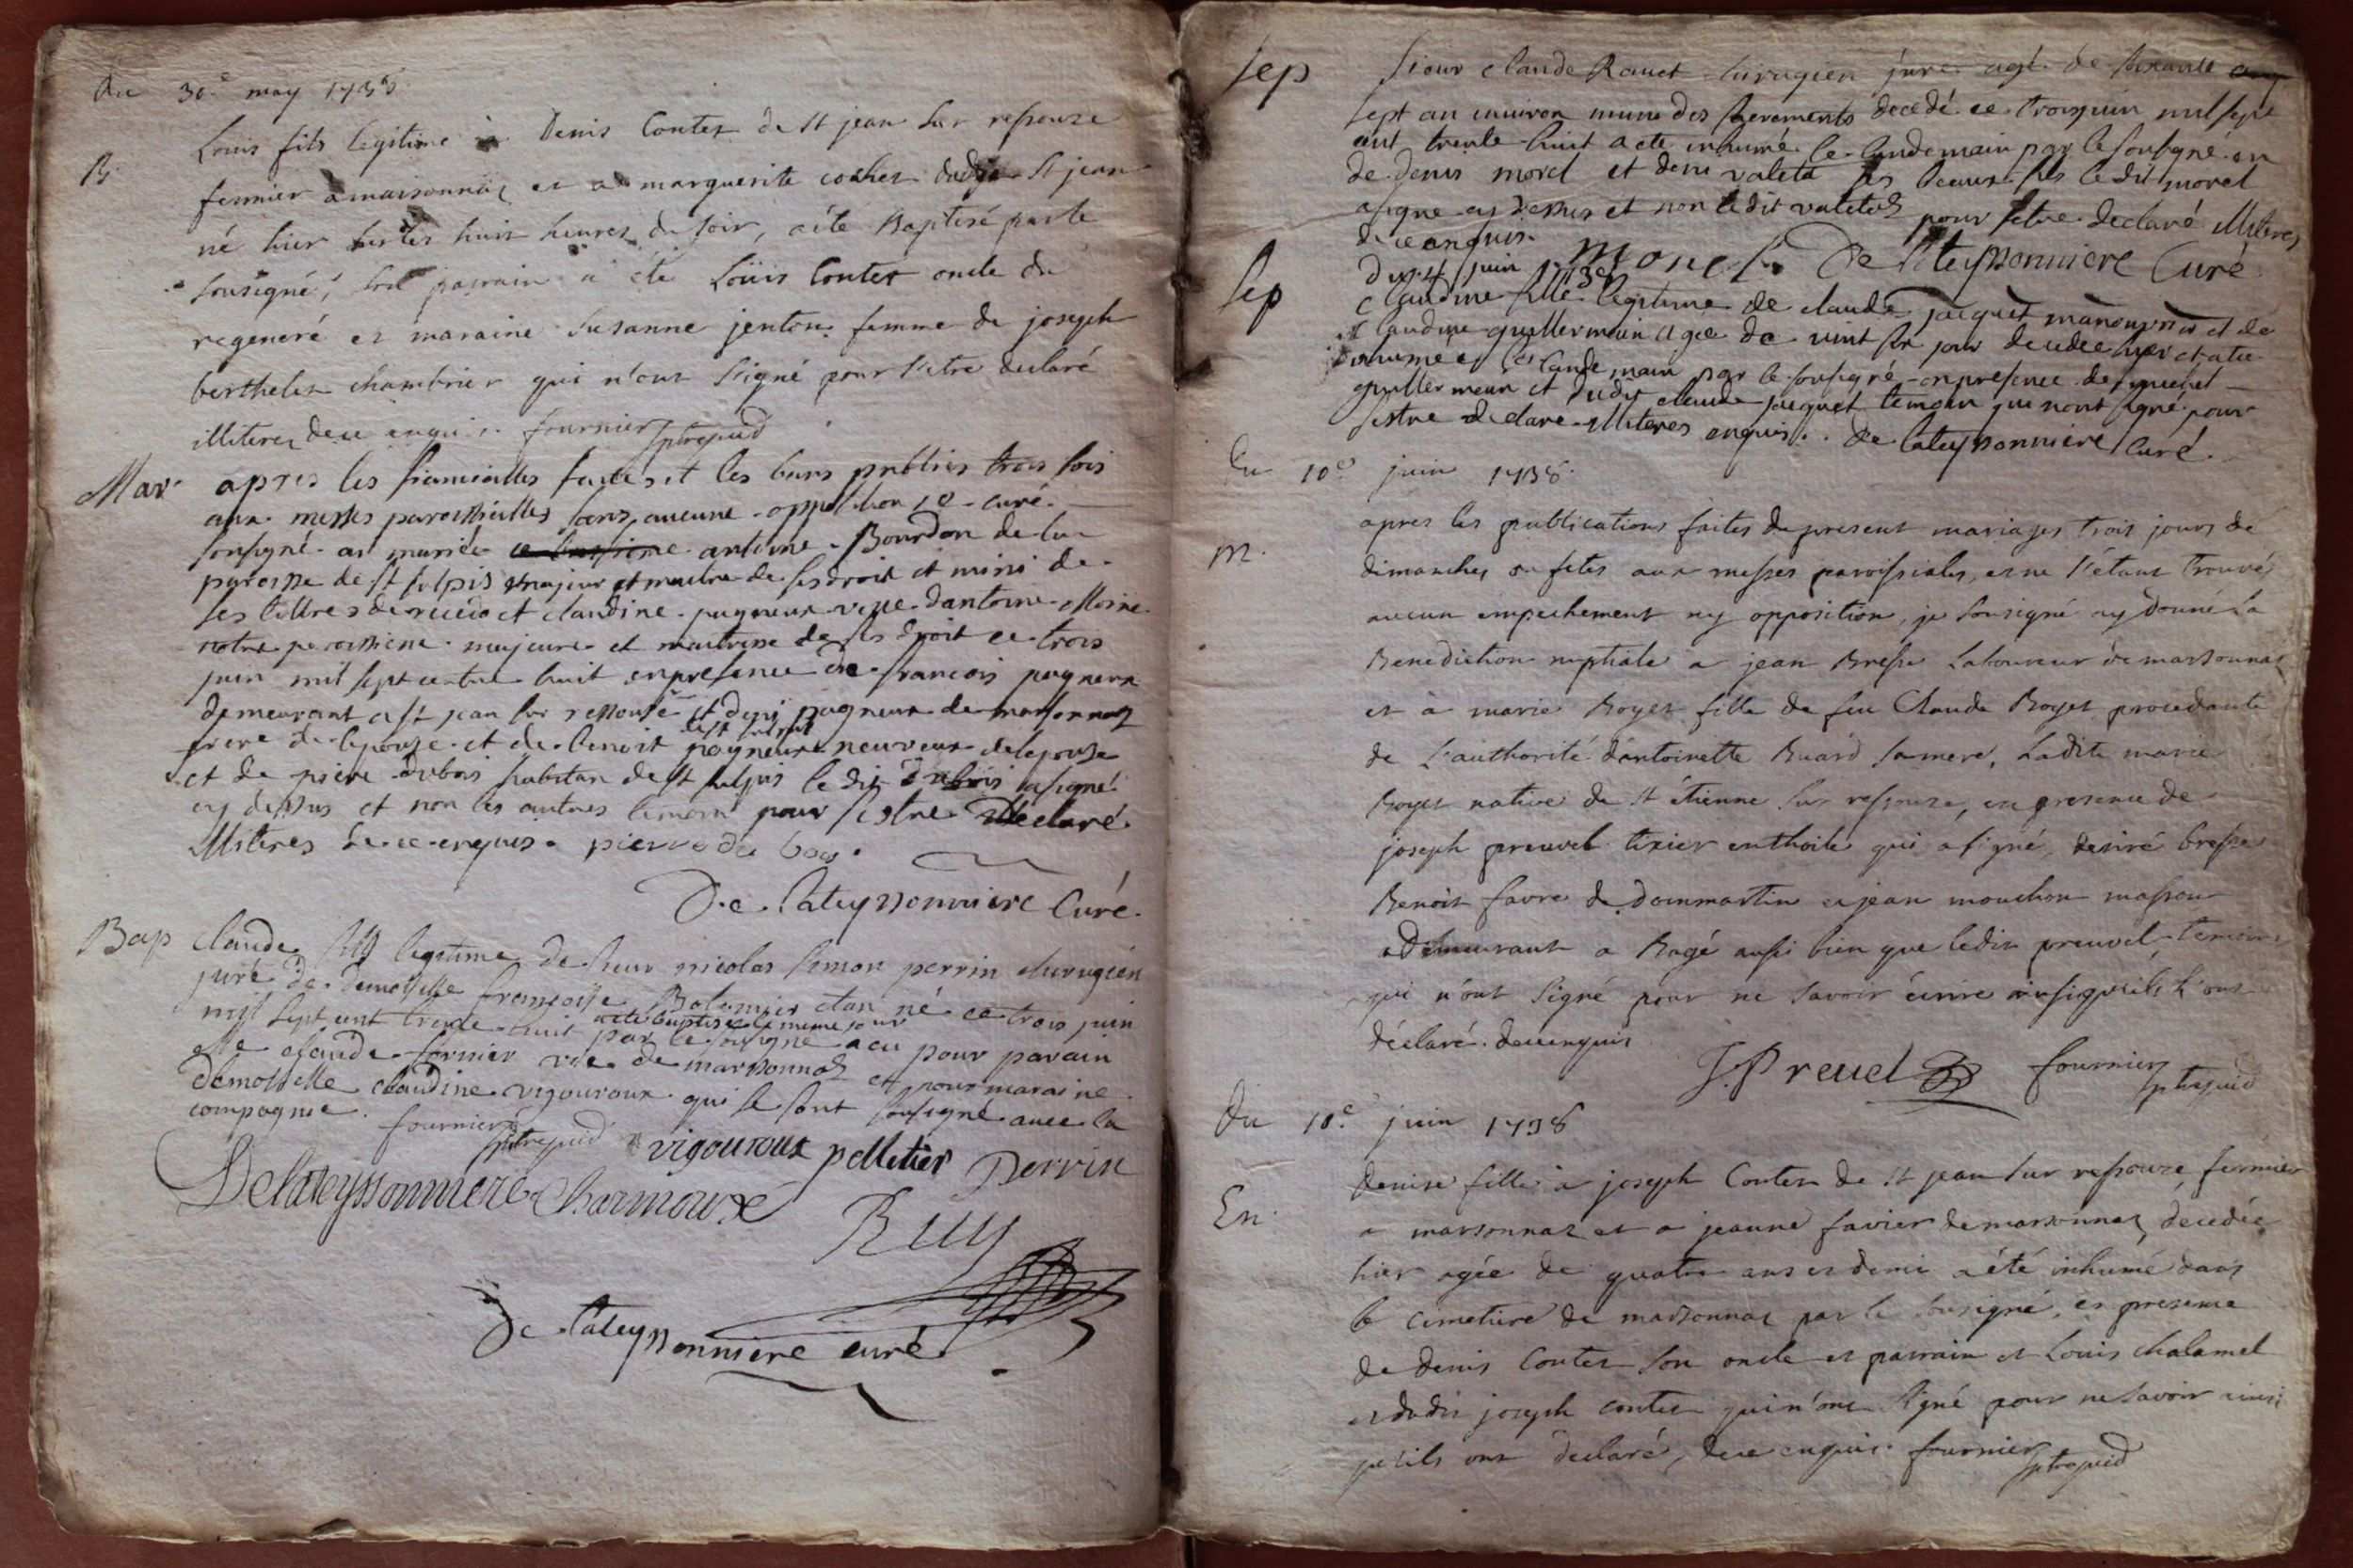 Du 30e may 1738
B. Louis fils legitime à Denis Contet de st jean sur ressouze
fermier a marsonnaz et a marguerite cochet dudit st jean
né hier sur les huit heures du soir, a été Baptisé par le
sousigné, son parrain a été Loüis Contet oncle du
regeneré et maraine Susanne jenton femme de joseph
berthelet chambrier qui n'ont signé pour s'etre declaré
illiteres de ce enquis. fournier
Mar apres les fiancialles faites et les bans publies trois fois
aux messes paroissialles sans aucune opposition je curé
sousigné ay mariée antoine Bourdon de la
paroisse de st sulpis majeur et maitre de ses droit et muni de
ses lettres de et claudine pugneux veve dantoine Moine
notre paroissiene majeure et maitresse de ses droit ce trois
juin mil sept cent huit en presence de francois pugneux
demeurant a st jean sur ressouse et denis pugneux de marsonnaz
de st sulpis
frere de lepouse et de benoit pugneux neuveux de lepouse
et de piere dubois habitan de st sulpis le dit dubois a signé
cy dessus et non les autres temoin pour sestre declaré
illiteres de ce enquis. pierre du bois.
De Lateyssonniere Curé.
Bap Claude fils legitime de sieur nicolas simon perrin chirugien
juré de demoiselle francoise etan né ce trois juin
a ete baptisé le meme jour
mil sept cent trente huit par le sousigné a eu pour parain
claude fornier de marsonnaz et pour maraine
demoiselle claudine vigouroux qui se sont sousigné avec la
compagnie. fournier
vigouroux pelletier Perrin
Delateyssonniere Charmoux
De Lateyssonniere curé
Sep Sieur claude Rauet chirugien juré agé de soixante
sept an environ muni des sacrements decedé ce trois juin mil sept
cent trente huit a ete inhumé le landemain par le sousigné en
de denis morel et denis valeta ses beaux fils le dit morel
a signe cy dessus et non le dit valeta pour setre declaré illiteres
de ce enquis. morel De Lateyssonniere Curé
Du 4 juin 1738
Sep Claudine fille legitime de claude jacquet manouvrier et de
claudine guillermain agee de vint six jour decedee hier et a ete
inhumée le landemain par le sousigné en presence de michel
guillermain et dudit claude jacquet temoin qui nont signé pour
sestre declare illiteres enquis. De Lateyssonniere Curé.
Du 10e juin 1738.
M. apres les publications faites du present mariages trois jours de
dimanches ou fetes aux messes paroissiales, et ne s'étant trouvé
aucun empechement ny opposition, je sousigné ay donné La
Benediction nuptiale a jean Bresse Laboureur de marsonnaz
et à marie Royet fille de feu Claude Royet procedante
de l'authorité d'antoinette Buard sa mere, Ladite marie
Royet native de st étienne sur ressouze, en presence de
joseph preuvel tixier en thoile qui a signé, desiré bresse
Benoit favre de dommartin et jean mouchon masson
demeurant a Bagé aussi bien que ledit preuvel temoins
qui n'ont signé pour ne savoir écrire ainsi qu'ils l'ont
déclaré de ce enquis
J. Preuel fournier
Du 10e juin 1738
En. Denise fille a joseph Contet de st jean sur ressouze, fermier
a marsonnaz et a jeanne favier de marsonnaz, decedée
hier agée de quatre ans et demi a été inhumé dans
le cimetiere de marsonnaz par le sousigné, en presence
de denis Contet son oncle et parrain et Louis chalamel
et dudit joseph contet qui n'ont signé pour ne savoir ainsi
qu'ils ont declaré, de ce enquis. fournier